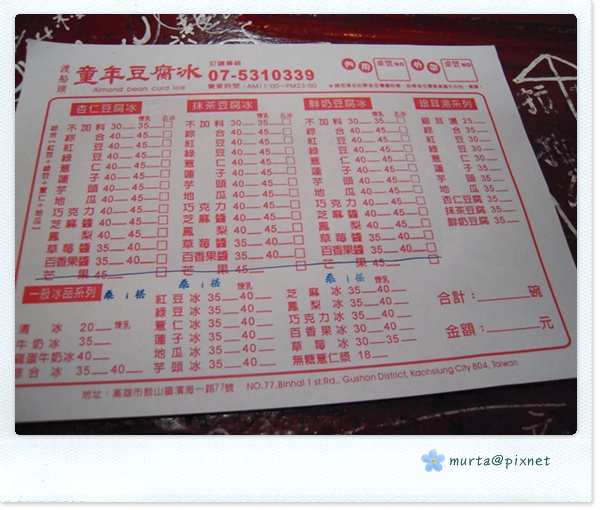 渡船頭 童年豆腐冰 訂購專線 07-5310339
Almond bean curd ice 營業時間:AM11:00~PM23:00
內用 桌號NO 外帶 桌號NO
杏仁豆腐冰 抹茶豆腐冰 鮮奶豆腐冰 銀耳湯系列
綜合【紅豆+綠豆+薏仁+地瓜】
煉乳 去冰 煉乳 去冰 煉乳 去冰
不加料 30 35 不加料 30 35 不加料 30 35 銀耳湯 25
綜合 40 45 綜合 40 45 綜合 40 45 綜合 35
紅豆 40 45 紅豆 40 45 紅豆 40 45 紅豆 30
綠豆 40 45 綠豆 40 45 綠豆 40 45 綠豆 30
薏仁 40 45 薏仁 40 45 薏仁 40 45 薏仁 30
蓮子 40 45 蓮子 40 45 蓮子 40 45 蓮子 35
芋頭 40 45 芋頭 40 45 芋頭 40 45 芋頭 35
地瓜 40 45 地瓜 40 45 地瓜 40 45 地瓜 35
巧克力 40 45 巧克力 40 45 巧克力 40 45 杏仁豆腐 35
芝麻醬 40 45 芝麻醬 40 45 芝麻醬 40 45 抹茶豆腐 35
鳳梨 40 45 鳳梨 40 45 鳳梨 40 45 鮮奶豆腐 35
草莓醬 35 40 草莓醬 35 40 草莓醬 35 40
百香果醬 35 40 百香果醬 35 40 百香果醬 35 40
芒果 45 芒果 45 芒果 45
一般冰品系列 桑椹 桑椹 桑椹
煉乳 煉乳 煉乳
清冰 20 紅豆冰 35 40 芝麻冰 35 40
牛奶冰 35 綠豆冰 35 40 鳳梨冰 35 40
雞蛋牛奶冰 40 薏仁冰 35 40 巧克力冰 35 40
綜合冰 35 40 蓮子冰 35 40 百香果冰 30 40
地瓜冰 35 40 草莓冰 30 35
芋頭冰 35 40 無糖薏仁漿 18
合計: 碗
金額: 元
地址:高雄市鼓山區濱海一路77號 NO.77,Binhai 1 st.Rd., Gushon District, Kaohsiung City 804, Taiwan
murta@pixnet